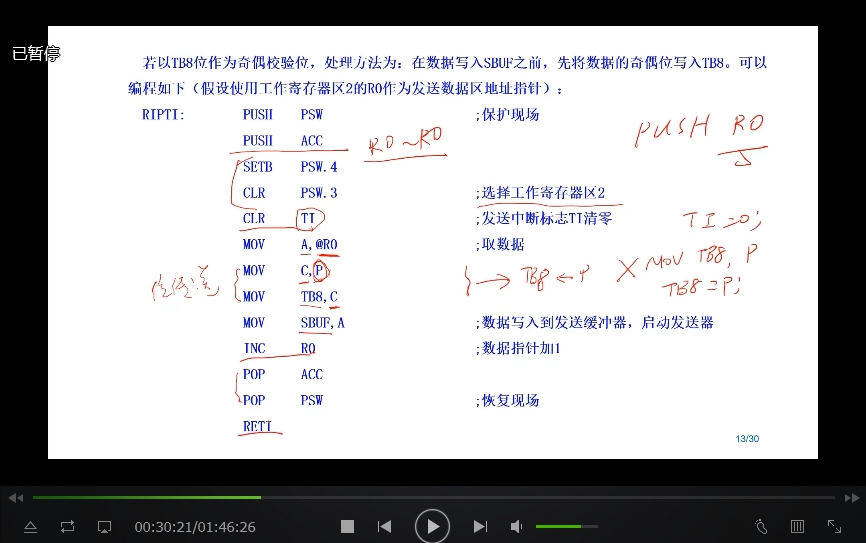 已暂停
若以TB8位作为奇偶校验位，处理方法为：在数据写入SBUF之前，先将数据的奇偶位写入TB8。可以
编程如下（假设使用工作寄存器区2的R0作为发送数据区地址指针）：
RIPTI: PUSH PSW ;保护现场
PUSH ACC
R0~R0
PUSH R0
SETB PSW.4
CLR PSW.3 ;选择工作寄存器区2
CLR TI ;发送中断标志TI清零
TI=0;
MOV A,@R0 ;取数据
MOV C,P
TB8←P
MOV TB8, P
TB8=P;
MOV TB8,C
MOV SBUF,A ;数据写入到发送缓冲器，启动发送器
INC R0 ;数据指针加1
POP ACC
POP PSW ;恢复现场
RETI
13/30
00:30:21/01:46:26